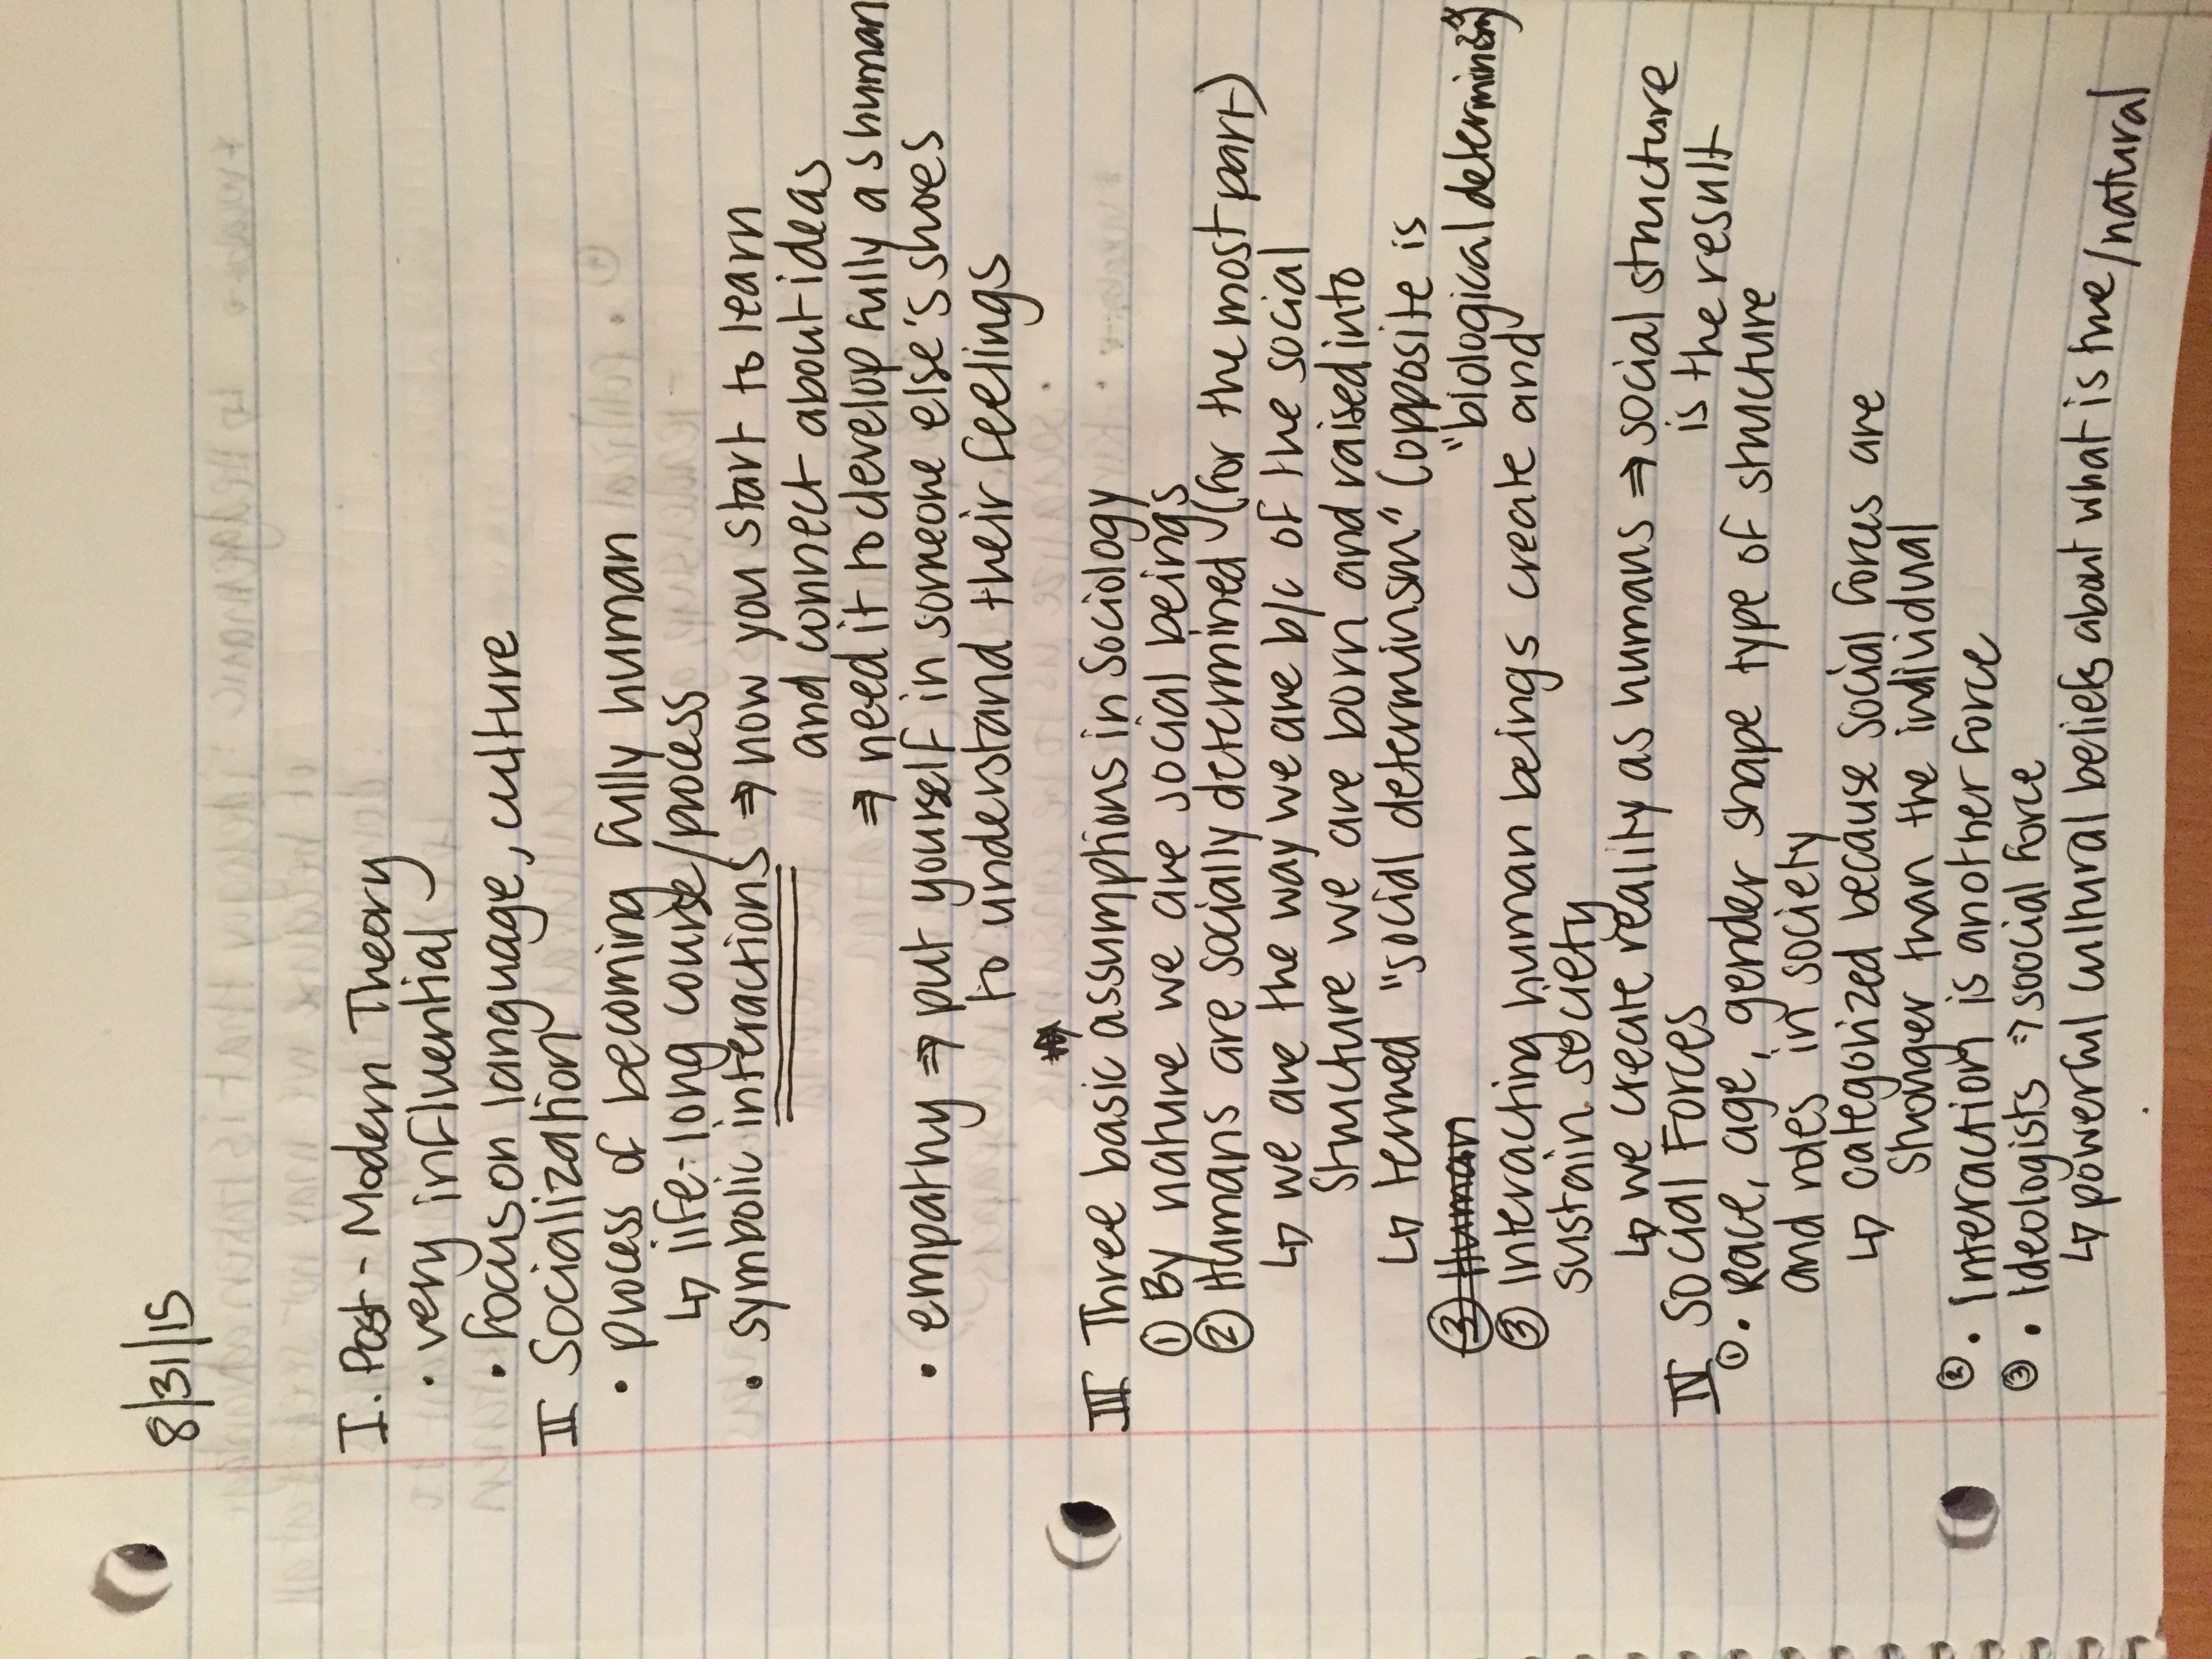 8/31/15
I. Post-Modern Theory
• very influential
• focus on language, culture
II Socialization
• process of becoming fully human
↳ life-long course/process
• symbolic interactions ⇒ how you start to learn
and connect about ideas
⇒ need it to develop fully as human
• empathy ⇒ put yourself in someone else's shoes
to understand their feelings
III Three basic assumptions in Sociology
① By nature we are social beings
② Humans are socially determined (for the most part)
↳ we are the way we are b/c of the social
structure we are born and raised into
↳ termed "social determinsm" (opposite is
"biological determinism")
③ Human
③ Interacting human beings create and
sustain society
↳ we create reality as humans ⇒ social structure
is the result
IV Social Forces
① • Race, age, gender shape type of structure
and roles in society
↳ categorized because social forces are
stronger than the individual
② • Interaction is another force
③ • Ideologists ⇒ social force
↳ powerful cultural beliefs about what is true/natural